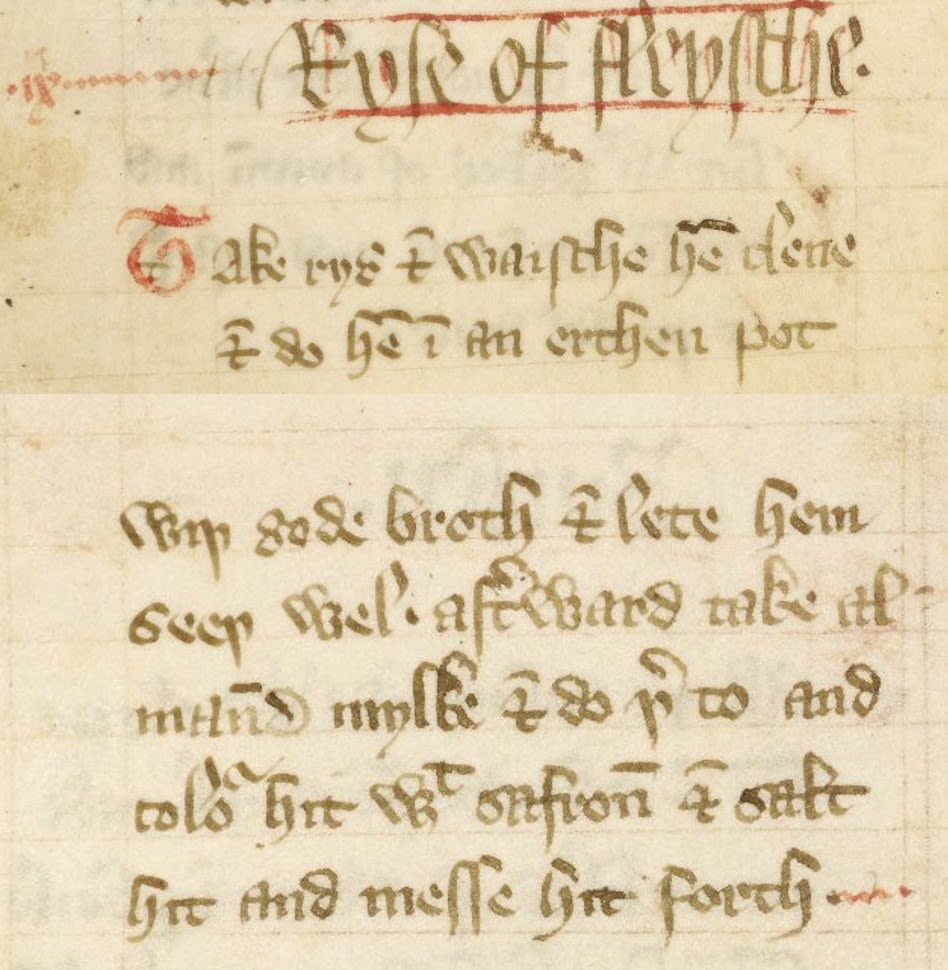 Ryse of fleysche.
Take rys & waische hē clene
& do hē ī an erthen pot
wiþ gode broth & lete hem
seeþ wel. aft͛ward take al-
mān̄d mylke & do þ͛ to and
coloᵃ hit wᵗ safron̄ & salt
hit and messe hit forth.